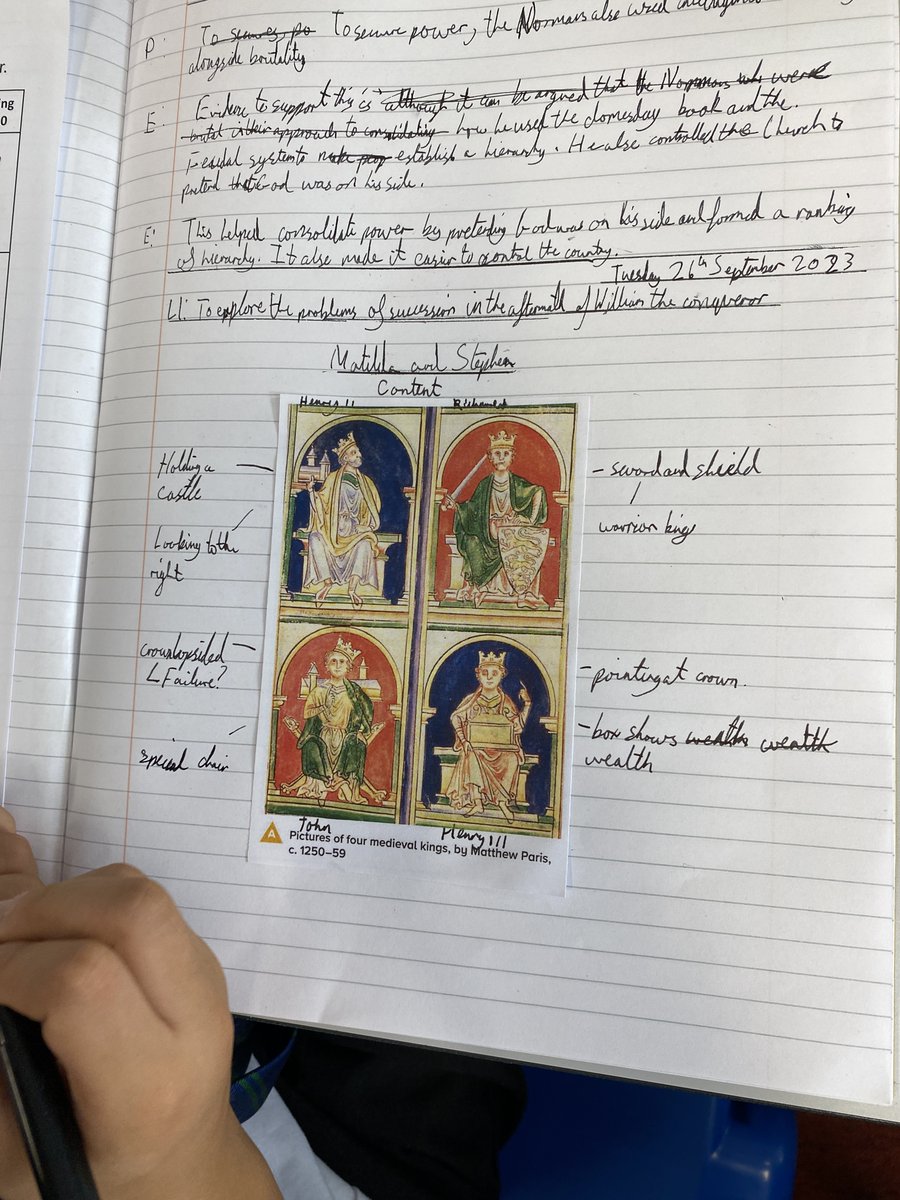 r.
ing
0
P: To secures, po To secure power, the Normans also used
alongside brutality
E: Evidence to support this is although it can be argued that the Normans who were
brutal in their approach to consolidating how he used the domesday book and the
Feudal system to make peop establish a hierarchy. He also controlled the Church to
pretend that God was on his side.
E: This helped consolidate power by pretending God was on his side and formed a ranking
of hierarchy. It also made it easier to control the country.
Tuesday 26th September 2023
LI: To explore the problems of succession in the aftermath of William the conqueror
Matilda and Stephen
Content
Henry II
Holding a
castle
Looking to the
right
crown lopsided
Failure?
special chair
- sword and shield
warrior king
- pointing at crown.
- box shows wealth wealth
wealth
John
Henry III
A
Pictures of four medieval kings, by Matthew Paris,
c. 1250–59